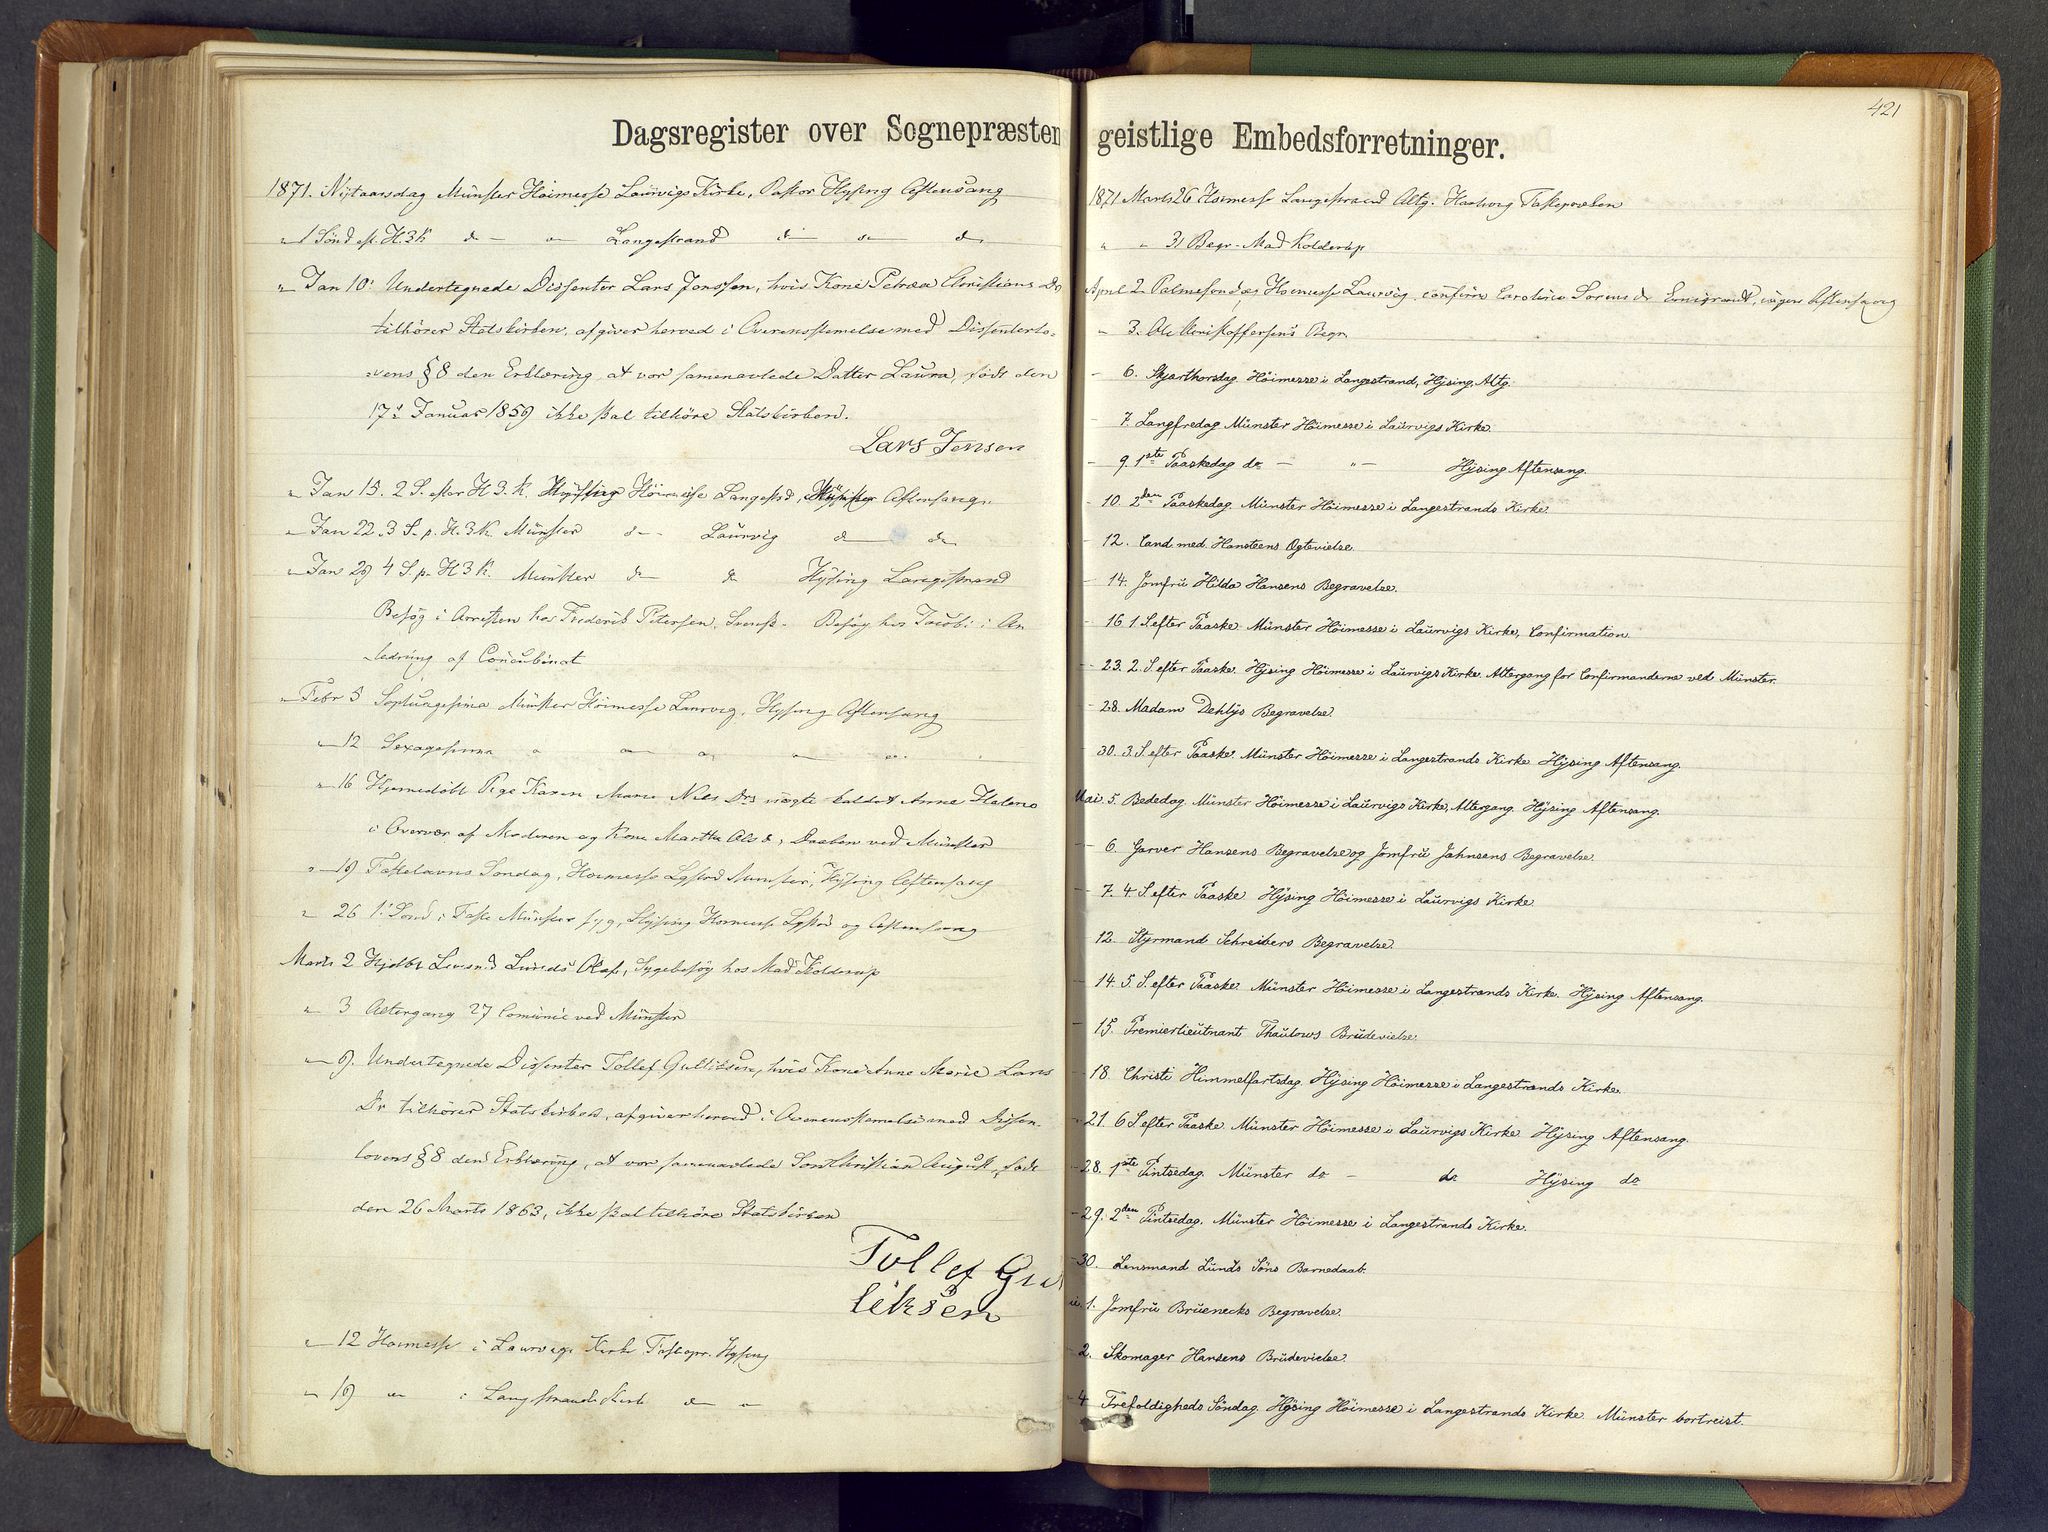 Dagsregister over Sognepræsten
1871. Nytaarsdag Münster Höimesse Laurvigs Kirke, Pastor Hysing Aftensang
" 1 Sönd ef. H. 3 K d - " Langestrand d - d
" Jan 10. Undertegnede Dissenter Lars Jenssen, hvis Kone Petrea Christians Dr
tilhører Statskirken, afgiver herved i Overensstemmelse med Dissenterlo-
vens § 8 den Erklæring, at vor samenavlede Datter Laura, födt den
17de Januar 1859 ikke skal tilhöre Statskirken.
Lars Jensen
" Jan 15. 2 S. efter H. 3. K. Hysing Höimesse Langestrd, Münster Aftensang.
" Jan 22. 3 S. p. H. 3 K. Münster d - Laurvig d d
" Jan 29 4 S. p. H 3 K. Münster d - d Hysing Langestrand
Besøg i Arresten hos Frederik Petersen, Svensk - Besøg hos Jacobi i An
ledning af Concubinat
" Febr 5 Septuagesima Münster Höimesse Laurvig, Hysing Aftensang
" 12 Sexagesima " " " " "
" 16 Hjemmedöbt Pige Karen Marie Nils Drs uægte kaldet Anne Helene
i Overvær af Moderen og Kone Martha Ols d, Daaben ved Münster
" 19 Fastelavns Søndag, Høimesse Lgstrd Münster, Hysing Aftensang
" 26 1. Sönd i Faste Münster syg, Hysing Høimesse Lgstrd og Aftensang
Marts 2 Hjdbt Lensmd Lunds Olaf, Sygebesøg hos Mad Kolderup
" 3 Altergang 27 Communic ved Münster
" 9. Undertegnede Dissenter Tollef Gulliksen, hvis Kone Anne Marie Lars
Dr tilhører Statskirken, afgiver herved i Overensstemmelse med Dissen-
lovens § 8 den Erklæring, at vor samenavlede Sön Christian August, født
den 26 Marts 1863, ikke skal tilhöre Statskirken
Tollef Gul
liksen
" 12 Høimesse i Laurvigs Kirke Hysing
" 19 " i Langestrands Kirke d "
421
geistlige Embedsforretninger.
1871 Marts 26 Høimesse Langestrand Altg.
" " 31 Begr. Mad Kolderup
April 2 Palmesöndag Høimesse Laurvig, Sorens dr Emigrant, ingen Aftensang
" 3. Ole Kristoffersens Begr.
- 6. Skjærthorsdag Höimesse i Langestrand, Hÿsing Altg.
- 7. Langfredag Münster Höimesse i Laürvigs Kirke.
- 9. 1ste Paaskedag do - " - Hÿsing Aftensang.
- 10. 2den Paaskedag Münster Höimesse i Langestrands Kirke.
- 12. Cand. med. Hansteens Ægtevielse.
- 14. Jomfrü Hilda Hansens Begravelse.
- 16 1. S. efter Paaske Münster Höimesse i Laürvigs Kirke, Confirmation.
- 23. 2. S. efter Paaske. Hÿsing Höimesse i Laürvigs Kirke. Altergang for Confirmanderne ved Münster.
- 28. Madam Dehlÿs Begravelse.
- 30. 3. S. efter Paaske. Münster Höimesse i Langestrands Kirke Hÿsing Aftensang.
Mai. 5. Bededag. Münster Höimesse i Laürvigs Kirke, Altergang. Hÿsing Aftensang.
- 6. Garver Hansens Begravelse og Jomfrü Jahnsens Begravelse.
- 7. 4. S. efter Paaske Hÿsing Höimesse i Laürvigs Kirke.
12. Styrmand Schreibers Begravelse.
- 14. 5. S. efter Paaske. Münster Höimesse i Langestrands Kirke. Hÿsing Aftensang.
- 15. Premierlieütnant Thaülows Brüdevielse.
- 18. Christi Himmelfartsdag. Hÿsing Höimesse i Langestrands Kirke.
- 21. 6 S. efter Paaske. Münster Höimesse i Laürvigs Kirke Hÿsing Aftensang.
- 28. 1ste Pintsedag. Münster do - do Hÿsing do
- 29. 2den Pintsedag. Münster Höimesse i Langestrands Kirke.
- 30. Lensmand Lünds Söns Barnedaab.
1. Jomfrü Brüenecks Begravelse.
- 2. Skomager Hansens Brüdevielse.
- 4 Trefoldigheds Söndag. Hÿsing Höimesse i Langestrands Kirke Münster bortreist.